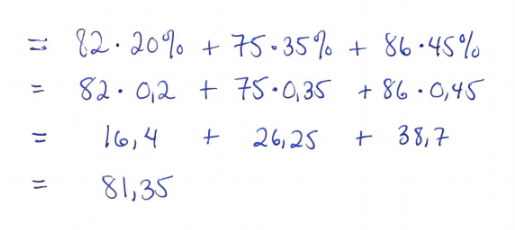 = 82 · 20% + 75 · 35% + 86 · 45%
= 82 · 0,2 + 75 · 0,35 + 86 · 0,45
= 16,4 + 26,25 + 38,7
= 81,35